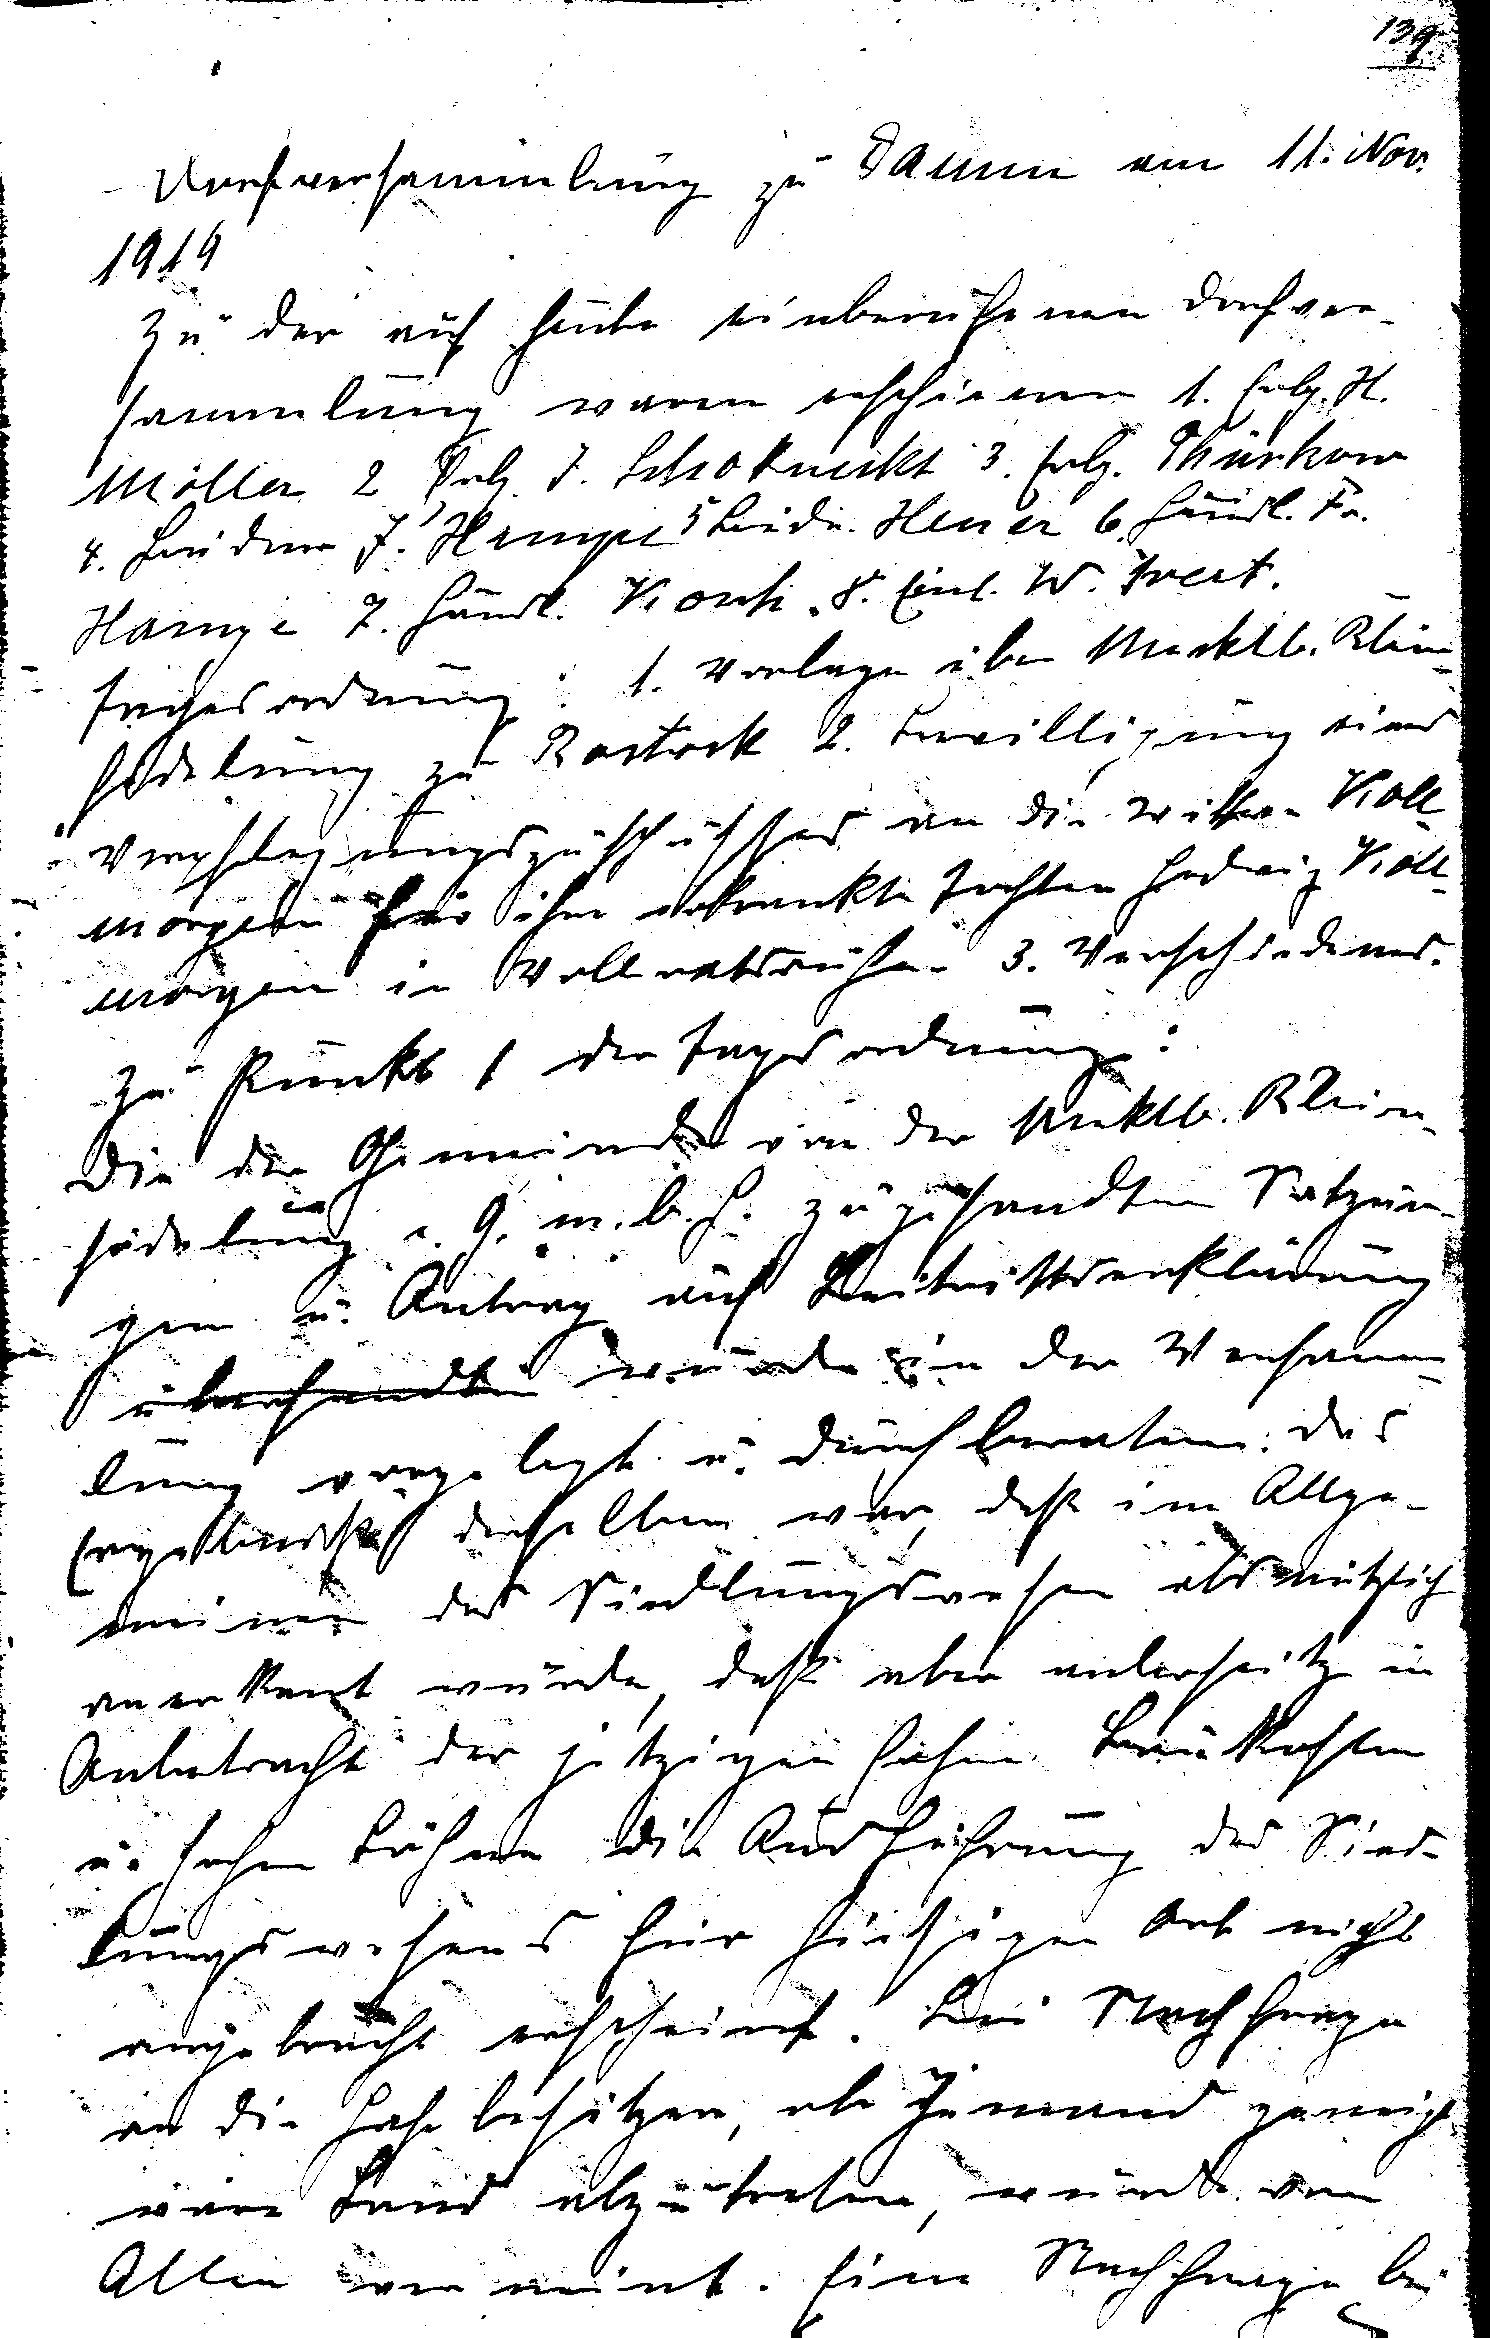 139.
Dorfversammlung zu Damm am 11. Nov.
1919
Zu der auf heute einberufenen Dorfver-
sammlung waren erschienen 1. Erbp. H.
Möller 2 Erbp. J. Schoknecht 3. Erbp. Thürkow
4. Büdner J. Hampe 5 Büdn. Heuer 6. Häusl. Fr.
Hampe 7. Häusl. Korch. 8. Einl. W. Evert.
Tagesordnung: 1. Vorlage über Mecklb. Klein
sidelung zu Rostock 2. Bewilligung eines
Verpflegungszuschusses an die Witwe Koll
morgen für ihre erkrankte Tochter Hedwig Koll-
morgen in Vollratsruhe 3. Verschiedenes.
Zu Punkt 1 der Tagesordnung:
Die der Gemeinde von der Mecklb. Klein-
sidelung G. m. b. H. zugesandten Satzun-
gen u. Antrag auf Beitrittserklärung
übersandten wurde in der Versamm-
lung vorgelegt u. durchberaten. Das
Ergebniß derselben war, daß im Allge-
meinen das Siedlungswesen als nützlich
anerkant würde, daß aber anderseitz in
Anbetracht der jetzigen hohen Baukosten
u. hohen Löhne die Ausführung des Sied-
lungswesens für hiesigen Ort nicht
angebracht erscheint. Bei Nachfrage
an die Hofbesitzer, ob Jemand geneigt
wäre Land abzutreten, wurde von
Allen verneint. Eine Nachfrage bei